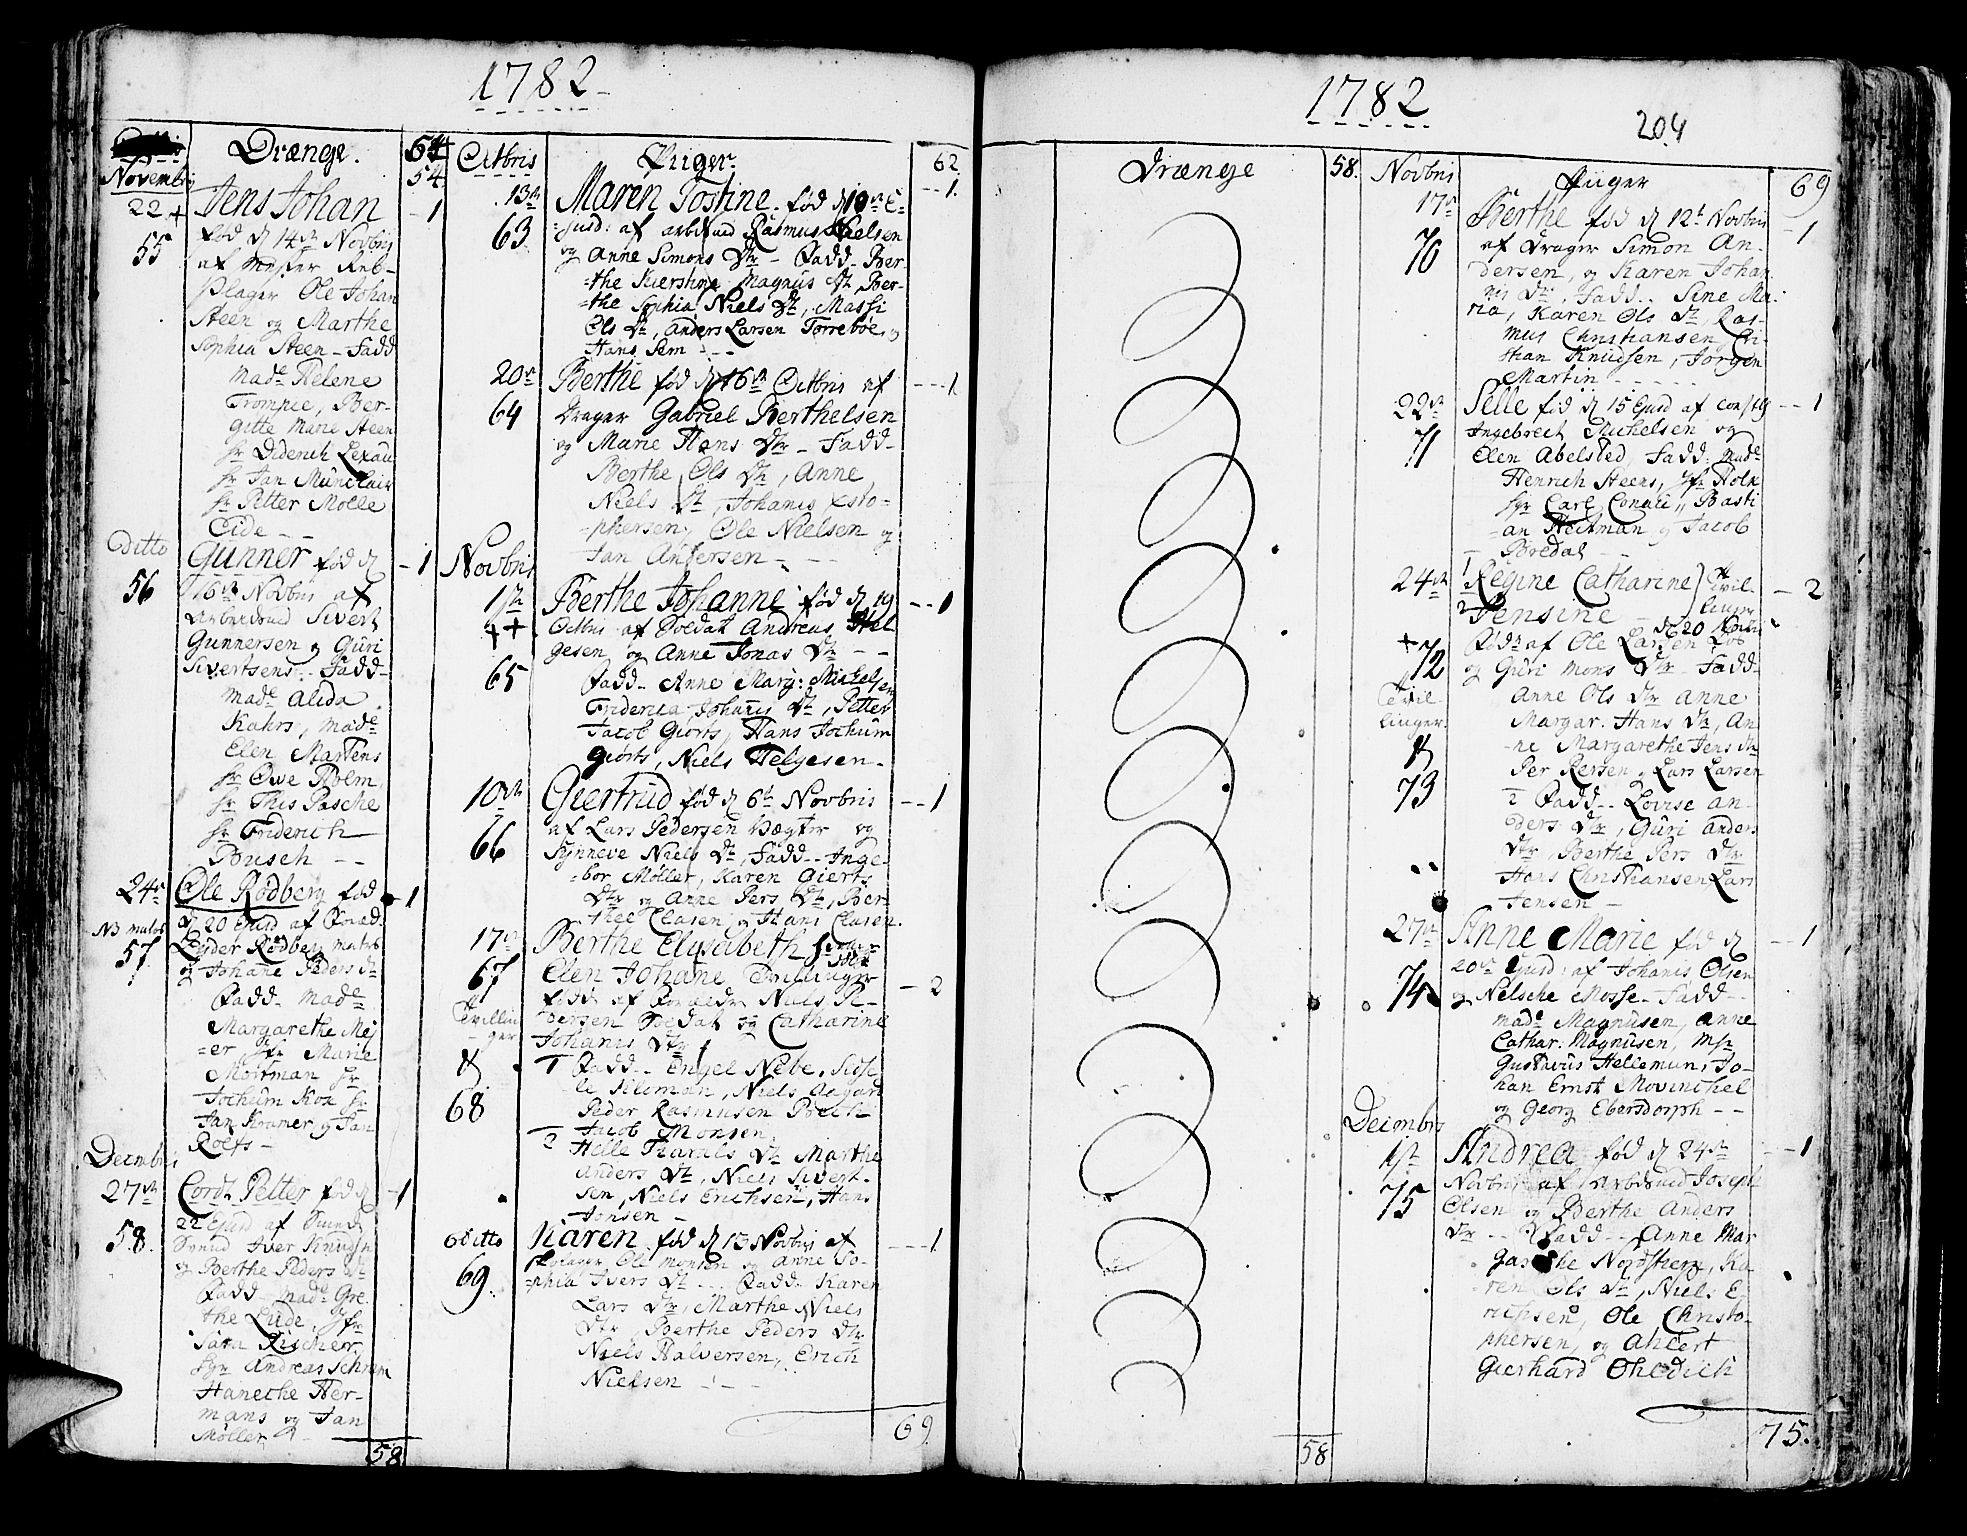 1782
Novembris
Drænge.
54
54
22 +
Jens Johan
- 1
55
fød d 14de Novbris
af Mester Reb-
slager Ole Johan
Steen og Marthe
Sophia Steen - Fadd
Made Helene
Trompee, Ber-
gitte Marie Steen
hr Diderich Lexau
hr Jan Münclair
hr Petter Molle
Eide - -
Ditto
Gunner fød d
- 1
56
16de Novbris af
Arbeidsmd Sivert
Gunnersen og Guri
Sivertsens - Fadd-
Made Alida
Kahrs, Made
Elen Martens
hr Owe Holm
hr This Pasche
hr Friderich
Busch - -
24de
Ole Rødberg fød
- 1
57
d 20 Ejusd af
Lyder Rødberg
og Johane Peders Dr
Fadd- Made
Margarethe Mej
=er Jfr Marie
Mortman hr
Jochum Kox hr
Jan Kramer og Jan
Rolfs -
Decmbris
27de
Cordt Petter fød d
- 1
58.
22 Ejusd af
Iver Knuds
og Berthe Peders Dr
Fadd Made Gre-
the Lude, Jfr
Sara Rischer,
hr Andreas Schram
Hanethe Her-
mans og Jan
Møller -
58
Octbris
Piiger
62
13de
Maren Jostine. fød d 10de E-
- - 1.
63
=jusd: af arbdmd Rasmus Nielsen
og Anne Simons Dtr - Fadd- Ber-
the Kierstine Magnus Dtr, Ber-
=the Sophia Niels Dtr, Massi
Ols Dtr, Anders Larsen Torreboe, og
Hans Sem - -
20de
Berthe fød d 16de Octbris af
- - - 1
64
Drager Gabriel Berthelsen
og Marie Hans Dtr - Fadd-
Berthe Ols Dtr, Anne
Niels Dtr, Johanis Xsto-
=phersen, Ole Nielsen og
Jan Andersen - -
Novbris
1ste
Berthe Johanne fød d 19
- - 1
+ +
Octbris af Soldat Andreas Hel
gesen og Anne Jonas Dtr - -
65
Fadd- Anne Marg: Mickelsen
Friderica Johanis Dtr, Petter
Jacob Giørts, Hans Jochum
Giørts, Niels Helgesen -
10de
Giertrud fød d 6te Novbris
- - 1
66
af Lars Pedersen Vægter og
Synneve Niels Dtr, Fadd- Inge-
=bor Møller, Karen Gierts
Dtr og Anne Pers Dtr, Ber-
thee Clasen og Hans Clasen.
17de
Berthe Elysabeth
67
Elen Johane Tvillinger
- 2
Tvillin
ger
født af Forældre Niels Pe-
dersen Soldat og Catharine
Johanis Dtr
&
1 Fadd- Engel Nebe, Sidse
le Kleman, Niels Aagard
68
Peder Rasmusen Boech
Jacob Monsen
2 Helle Frantls Dtr Marthe
Anders Dtr, Niels Sivert-
sen, Niels Erichsen, Hans
Jonsen -
ditto
Karen fød d 13 Novbris af
- - - 1
69
Ole Monsen og Anne So-
=phia Ivers Dtr - Fadd. Karen
Lars Dtr, Marthe Niels
Dtr, Berthe Peders Dtr
Niels Halversen, Erich
Nielsen - - -
69
1782
204
Drænge
58.
58
Novbris
Piiger
69
17de
Berthe fød d 12te Novbris
- 1
70
af Drager Simon An-
dersen, og Karen Johan
nis Dtr, Fadd. Sine Ma-
ria, Karen Ols Dtr, Ras-
mus Christiansen Cri-
thian Knudsen, Jørgen
Martin - - - -
22de
Selle fød d 15 Ejusd af Const
- - 1
71
Ingebrect Michelsen og
Elen Abelsted Fadd: Made
Henrich Steens, Jfr Holk
hr Carl Conau, Basti
=an Heitman og Jacob
Bredal - -
24de
1 Regine Catharine
2 Jensine
Tvil-
linger
- 2
+ 72
d 20 Novbr
Fødde af Ole Larsen Los
og Guri Mons Dtr - Fadd-
Tvil-
linger.
Anne Ols Dtr Anne
Margar: Hans Dtr, An-
ne Margarethe Jens Dtr
&
Per Persen og Lars Larsen
73
2 Fadd- Lovise An-
ders Dtr, Guri Anders
Dtr, Berthe Pers Dtr
Hans Christiansen Lars
Jensen -
27de
Anne Marie fød d
- - 1
74
20de Ejusd: af Johanis Olsen
og Nelsche Mosse - Fadd-
Made Magnusen, Anne
Cathar: Magnusen, Msr
Gustavus Hellemun, Jo-
han Ernst Movinchel
og Georg Ebersdorph - -
Decmbris
1ste
Andrea fød d 24de
- - 1
75
Novbris af Arbdsmd Joseph
Olsen og Berthe Anders
Dtr - - Fadd- Anne Mar
garethe Nordstiern, Ka
ren Ols Dtr, Niels E
richsen, Ole Christo-
phersen, og Ahlert
Gierhard Ohedich
75.